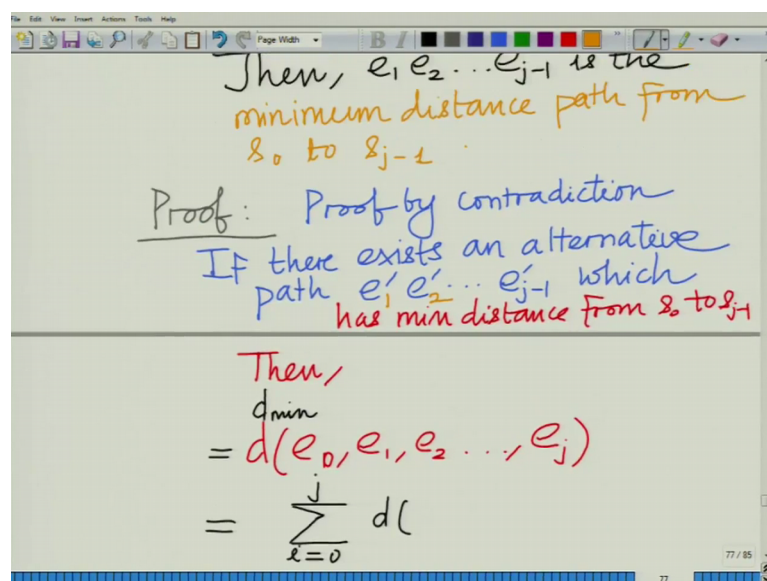 File Edit View Insert Actions Tools Help
Page Width
B I
Then, e₁ e₂ ... e_{j-1} is the
minimum distance path from
s₀ to s_{j-1}.
Proof: Proof by contradiction
If there exists an alternative
path e₁' e₂' ... e'_{j-1} which
has min distance from s₀ to s_{j-1}
Then,
d_{min}
= d(e₀, e₁, e₂ ..., e_j)
= ∑_{i=0}^{j} d(
77 / 85
77